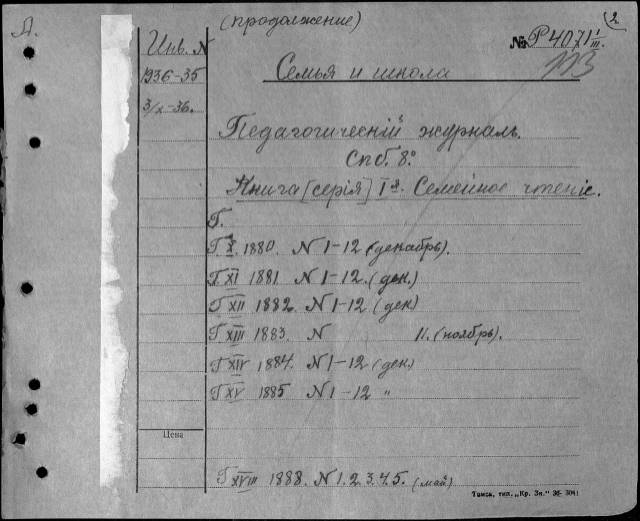 (продолжение)
2
Л.
Инв. N
№ Р4071 I/III.
1936-35
Семья и школа
3/X-36.
Педагогическій журналъ.
Спб. 8.°
Книга [серія] Iя. Семейное чтеніе.
Г.
Г. X. 1880. N 1-12 (декабрь).
Г. XI 1881. N 1-12. (дек.)
Г. XII 1882. N 1-12 (дек)
Г. XIII 1883. N 11. (ноябрь).
Г. XIV 1884. N 1-12 (дек)
Г. XV 1885 N 1-12 "
Цена
Г. XVIII 1888. N 1. 2. 3. 4. 5. (май)
Томск, тип. „Кр. Зн." 36- 3041